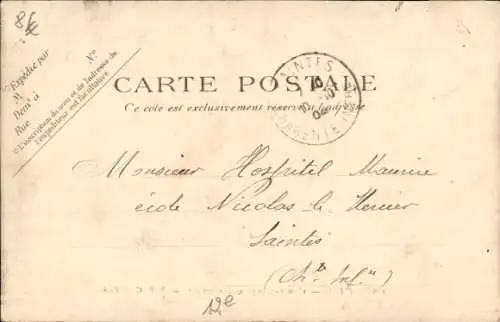 8€
Expédié par
M
Demt à
Rue
N°
L'inscription du nom et de l'adresse de
l'expéditeur est facultative
CARTE POSTALE
Ce côté est exclusivement réservé à l'adresse
SAINTES
10
04
CHARENTE INFRE
Monsieur Hospitel Maurice
école Nicolas le Mercier
Saintes
(Chte Infre)
12e